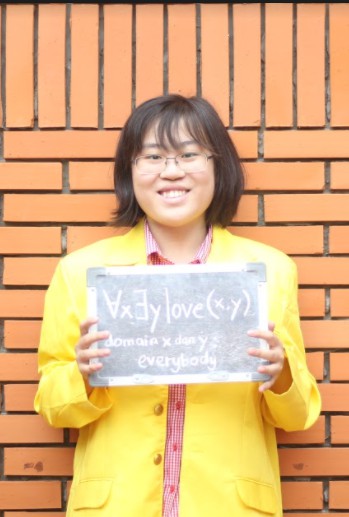 ∀x∃y love(x,y)
domain x dan y =
everybody